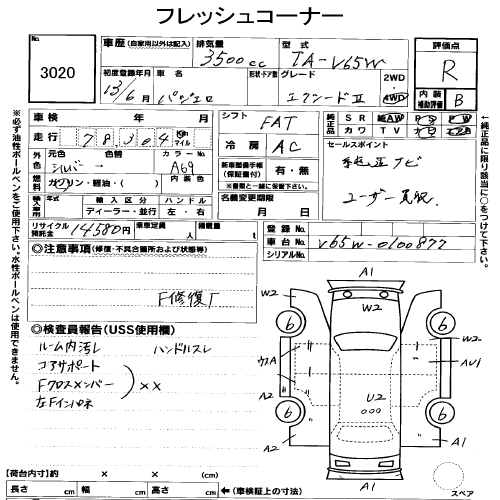 フレッシュコーナー
No.
3020
車歴 (自家用以外は記入)
排気量
3500cc
型式
TA-V65W
評価点
R
初度登録年月
13/6
車名
パジェロ
形状・ドア数
グレード
エクシードⅡ
2WD
4WD
内装補助評価
B
車検 年 月
シフト
FAT
純正品
SR AW PS PW
カワ TV
走行
78,304
Km
マイル
冷房
AC
セールスポイント
外色
元色
シルバー
色替
カラーNo.
A69
新車整備手帳(保証書付)
有・無
※書類と一緒に保管下さい。
ユーザー買取
燃料
ガソリン・軽油・( )
内装色
輸入車
年式
輸入区分
ディーラー・並行
ハンドル
左・右
名義変更期限
月 日
リサイクル預託金
14580円
乗車定員
人
積載量
t
登録No.
車台No.
V65W-0100877
シリアルNo.
◎注意事項 (修復・不具合箇所および状態等)
F修復了
◎検査員報告(USS使用欄)
ルーム内汚し ハンドルスレ
コアサポート
Fクロスメンバー
左Fインパネ
××
A1
W2
W2
W2
6
6
6
6
ウスA
AU1
U2
A2
A2
A1
A1
スペア
【荷台内寸】約 × × (cm)
長さ cm 幅 cm 高さ cm ←(車検証上の寸法)
※必ず油性ボールペンをご使用下さい。水性ボールペンは使用できません。
←純正品に限り該当に○をつけて下さい。